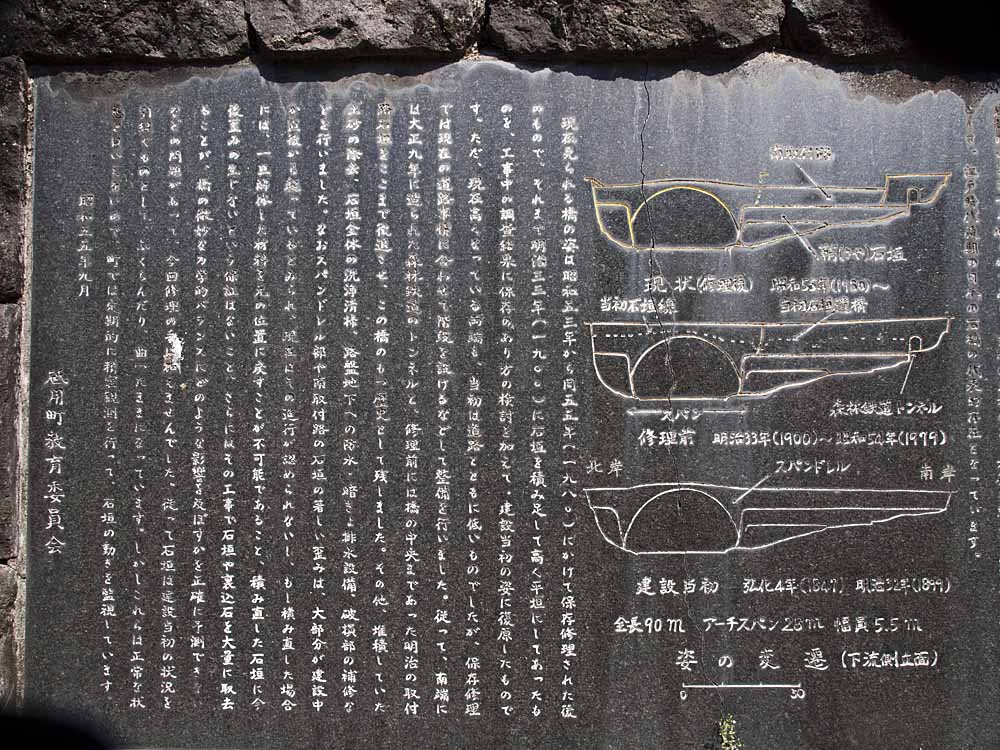 江戸時代
現在見られる橋の姿は昭和五三年から同五五年(一九八〇)にかけて保存修理された後
のもので、それまで明治三三年(一九〇〇)に石垣を積み足して高く平垣にしてあったも
のを、工事中の調査結果に保存のあり方の検討を加えて、建設当初の姿に復原したもので
す。ただ、現在高くなっている両端も、当初は道路とともに低いものでしたが、保存修理
では現在の道路事情に合わせて階段を設けるなどして整備を行いました。従って、南端に
は大正九年に造られた森林鉄道のトンネルと、修理前には橋の中央まであった明治の取付
路石垣をここまで後退させ、この橋のもつ歴史として残しました。その他、堆積していた
土砂の除去、石垣全体の洗浄清掃、路盤地下への防水、暗きょ排水設備、破損部の補修な
どを行いました。なおスパンドレル部や取付路の石垣の著しい歪みは、大部分が建設中
か直後から起っているとみられ、現在はその進行が認められないし、もし積み直した場合
には、一旦解体した材料を元の位置に戻すことが不可能であること、積み直した石垣に今
後歪みの生じないという保証はないこと、さらにはその工事で石垣や裏込石を大量に取去
ることが、橋の微妙な力学的バランスにどのような影響を及ぼすかを正確に予測できな
などの問題があって、今回修理の手は加えませんでした。従って石垣は建設当初の状況を
引継ぐものとして、ふくらんだり、曲ったままになっています。しかしこれらは正常な状
町では定期的に精密観測を行って、石垣の動きを監視しています
昭和五五年九月
砥用町教育委員会
南取付路
鞘(さや)石垣
現状(修理後) 昭和55年(1980)~
当初石垣線
当初石垣遺構
スパン
森林鉄道トンネル
修理前 明治33年(1900)~昭和54年(1979)
北岸
スパンドレル
南岸
建設当初 弘化4年(1847) 明治32年(1899)
全長90m アーチスパン28m 幅員5.5m
姿の変遷(下流側立面)
0 30